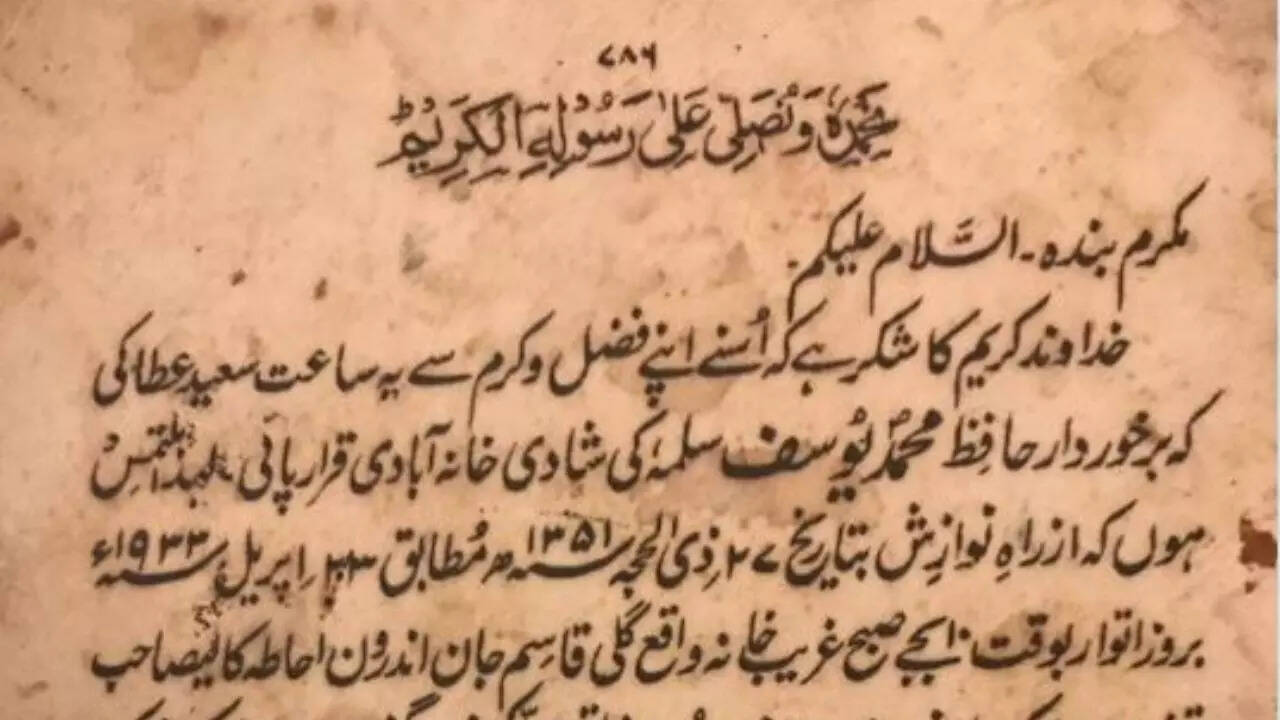 ۷۸۶
نَحْمَدُہٗ وَنُصَلِّی عَلٰی رَسُوْلِہِ الْکَرِیْمْ
مکرم بندہ ۔ السَّلام علیکم ۔
خداوند کریم کا شکر ہے کہ اُسنے اپنے فضل و کرم سے یہ ساعت سعید عطا کی
کہ برخوردار حافِظ محمّد یُوسف سلمہٗ کی شادی خانہ آبادی قرار پائی ۔ لہٰذا ملتمِسْ
ہوں کہ از راہِ نوازِش بتاریخ ۲۷؍ذِی الحجہ سنہ ۱۳۵۱ھ مُطابق ۲۳؍اپریل سنہ ۱۹۳۳ء
بروز اتوار بوقت ۱۰ بجے صبح غریب خانہ واقع گلی قاسِم جان اندرون احاطہ کالیصاحب